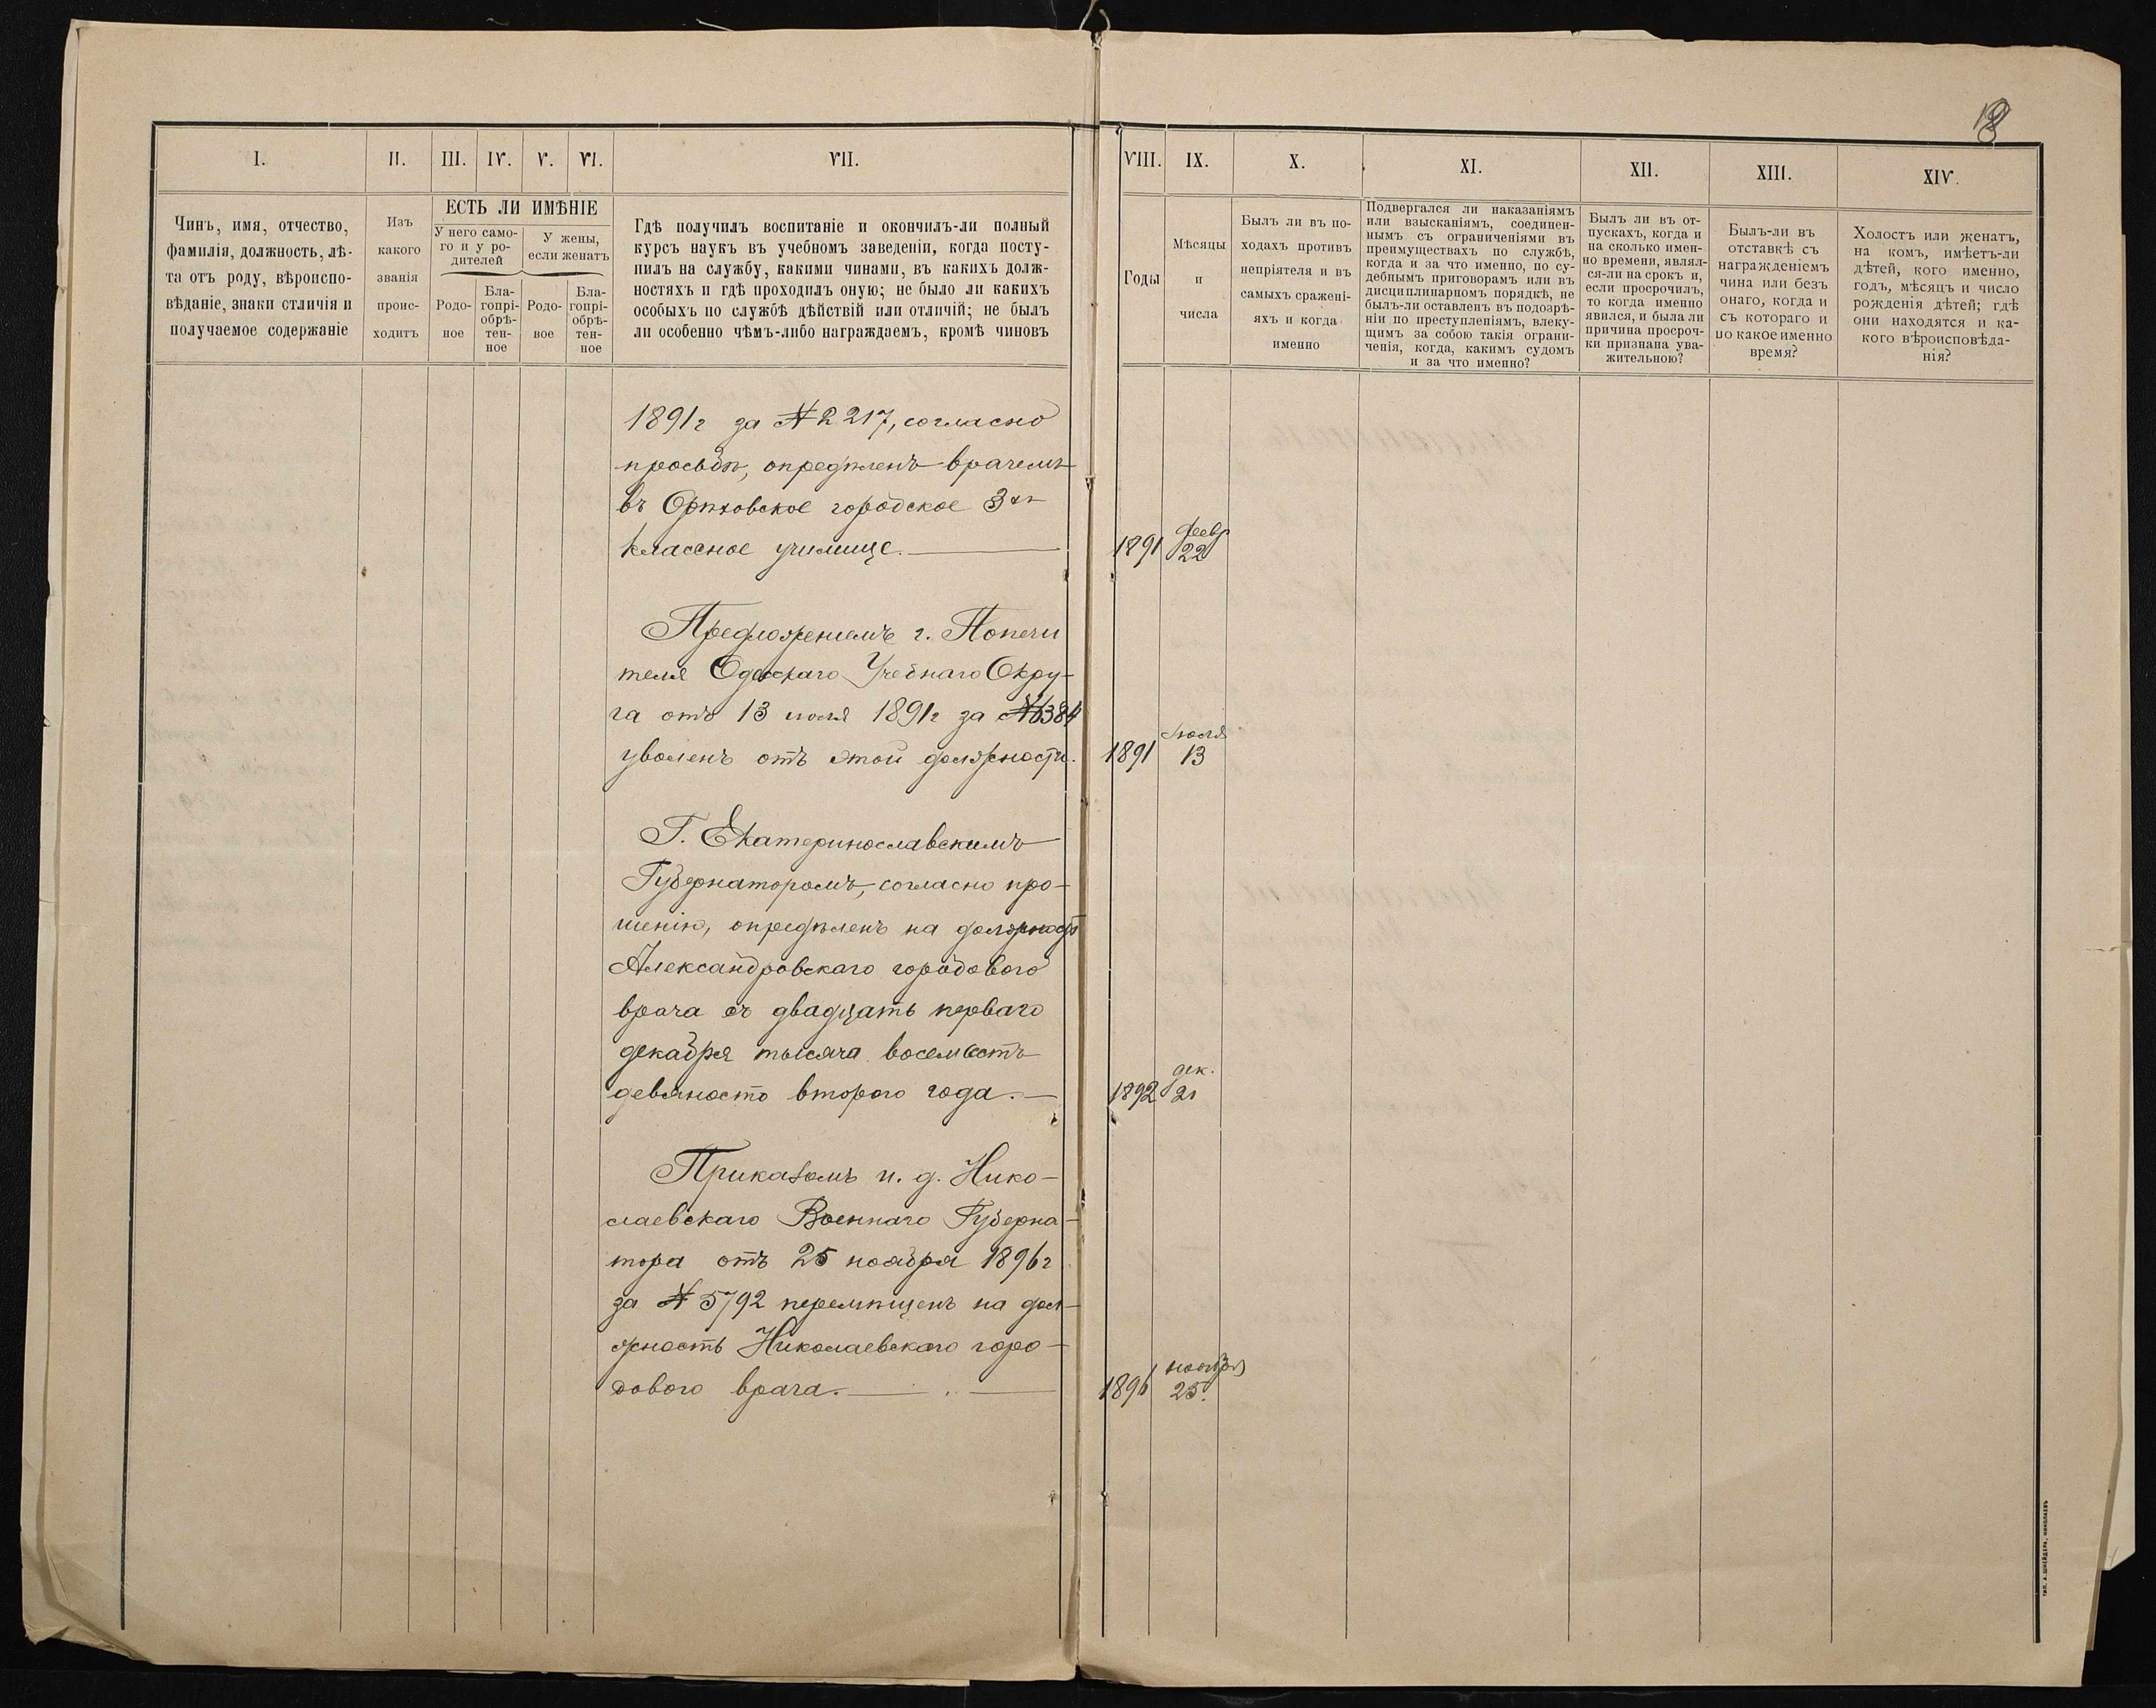 18
I.
II.
III.
IV.
V.
VI.
VII.
VIII.
IX.
X.
XI.
XII.
XIII.
XIV.
Чинъ, имя, отчество,
фамилія, должность, лѣ-
та отъ роду, вѣроиспо-
вѣданіе, знаки отличія и
получаемое содержаніе
Изъ
какого
званія
проис-
ходитъ
ЕСТЬ ЛИ ИМѢНІЕ
У него само-
го и у ро-
дителей
У жены,
если женатъ
Родо-
ное
Бла-
гопрі-
обрѣ-
тен-
ное
Родо-
вое
Бла-
гопрі-
обрѣ-
тен-
ное
Гдѣ получилъ воспитаніе и окончилъ-ли полный
курсъ наукъ въ учебномъ заведеніи, когда посту-
пилъ на службу, какими чинами, въ какихъ долж-
ностяхъ и гдѣ проходилъ оную; не было ли какихъ
особыхъ по службѣ дѣйствій или отличій; не былъ
ли особенно чѣмъ-либо награждаемъ, кромѣ чиновъ
Годы
Мѣсяцы
и
числа
Былъ ли въ по-
ходахъ противъ
непріятеля и въ
самыхъ сражені-
яхъ и когда
именно
Подвергался ли наказаніямъ
или взысканіямъ, соединен-
нымъ съ ограниченіями въ
преимуществахъ по службѣ,
когда и за что именно, по су-
дебнымъ приговорамъ или въ
дисциплинарномъ порядкѣ, не
былъ-ли оставленъ въ подозрѣ-
ніи по преступленіямъ, влеку-
щимъ за собою такія ограни-
ченія, когда, какимъ судомъ
и за что именно?
Былъ ли въ от-
пускахъ, когда и
на сколько имен-
но времени, являл-
ся-ли на срокъ и,
если просрочилъ,
то когда именно
явился, и была ли
причина просроч-
ки признана ува-
жительною?
Былъ-ли въ
отставкѣ съ
награжденіемъ
чина или безъ
онаго, когда и
съ котораго и
по какое именно
время?
Холостъ или женатъ,
на комъ, имѣетъ-ли
дѣтей, кого именно,
годъ, мѣсяцъ и число
рожденія дѣтей; гдѣ
они находятся и ка-
кого вѣроисповѣда-
нія?
1891 г за № 2217, согласно
просьбѣ, опредѣленъ врачемъ
въ Орѣховское городское 3хъ
классное училище.
1891 февр 22
Предложеніемъ г. Попечи
теля Одесскаго Учебнаго Окру-
га отъ 13 іюля 1891 г за № 6384
уволенъ отъ этой должности.
1891 Іюля 13
Г. Екатеринославскимъ
Губернаторомъ, согласно про-
шенію, опредѣленъ на должность
Александровскаго городового
врача съ двадцать перваго
декабря тысяча восемьсотъ
девяносто второго года.
1892 дек. 21
Приказомъ и. д. Нико-
лаевскаго Военнаго Губерна-
тора отъ 25 ноября 1896 г
за № 5792 перемѣщенъ на дол-
жность Николаевскаго горо-
дового врача.
1896 ноября 25.
ТИП. А. ШНЕЙДЕРЪ, НИКОЛАЕВЪ